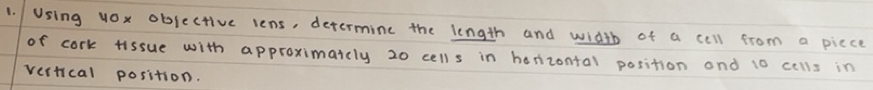 1. Using 40x objective lens, determine the length and width of a cell from a piece
of cork tissue with approximately 20 cells in horizontal position and 10 cells in
vertical position.